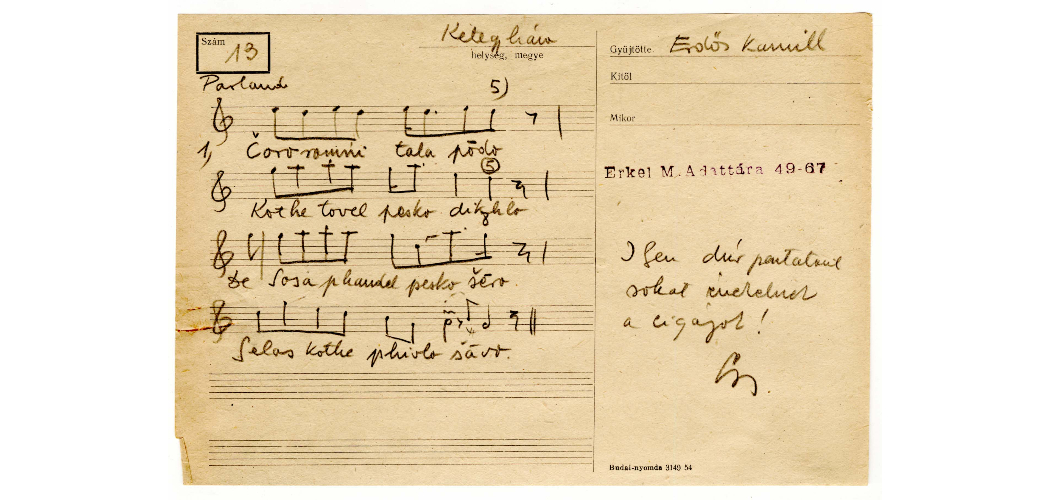 Szám
13
Kétegyháza
helység, megye
Parlando
5)
1, Čoro romni tala pōdo
5
Kothe tovel pesko dikhlo
De Sosa phandel pesko šēro.
Selas kothe phivlo šāvo.
Gyüjtötte Erdős Kamill
Kitől
Mikor
Erkel M. Adattára 49-67
Igen dúr pentatoni
sokat énekelnek
a cigányok!
Budai-nyomda 3149 54